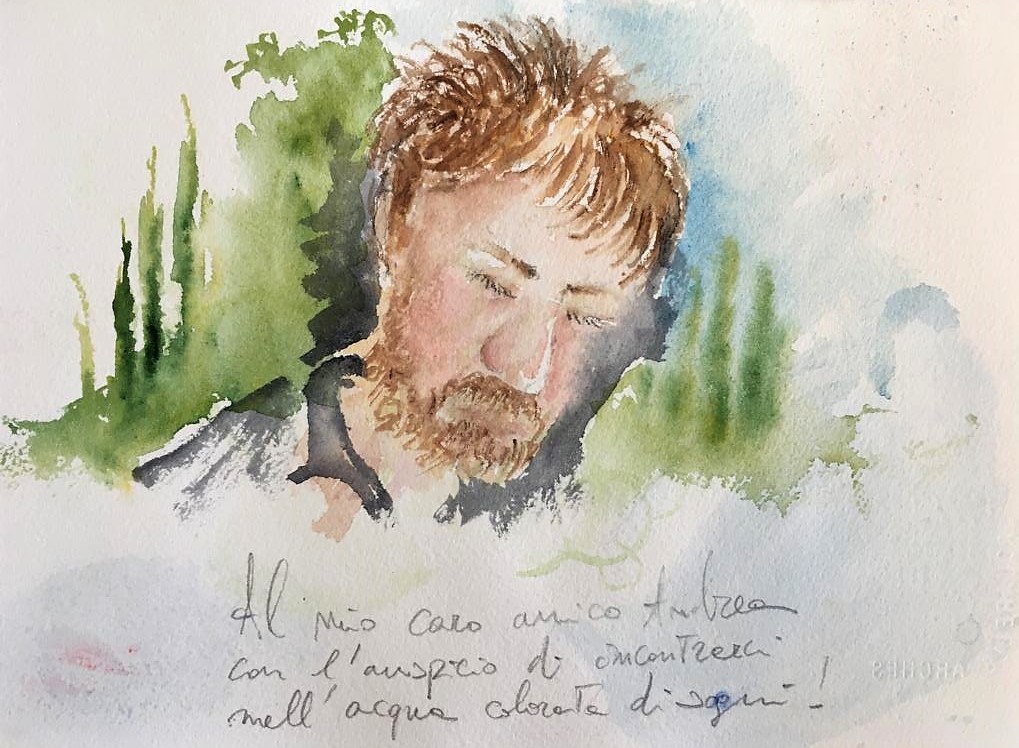 Al mio caro amico Andrea
con l'auspicio di incontrarci
nell'acqua colorata di sogni!
ARCHES